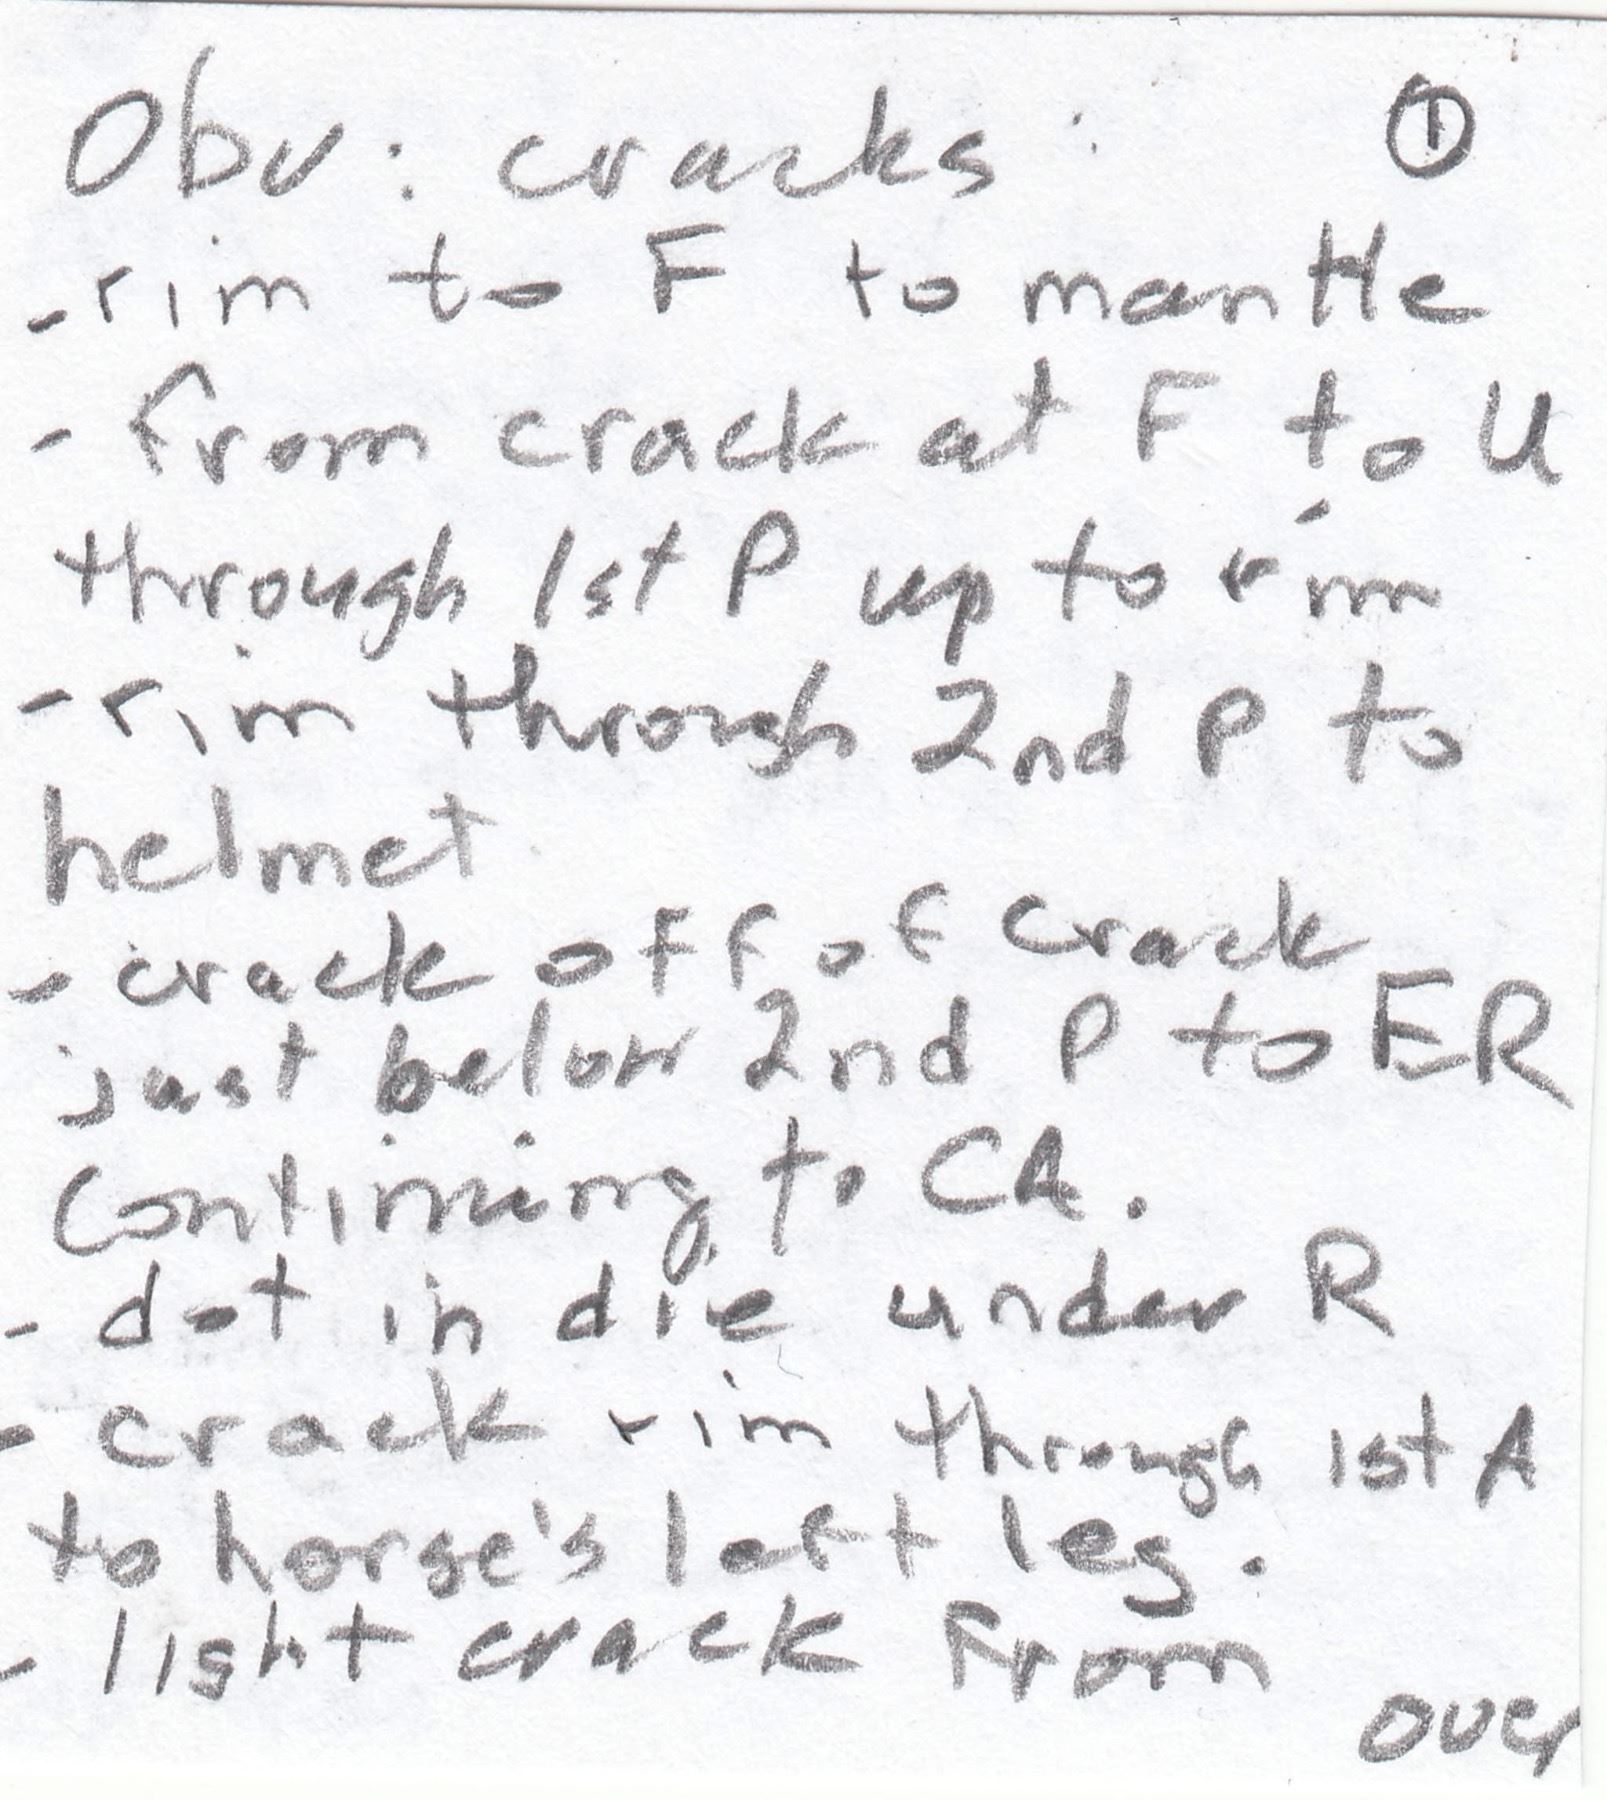 Obv: cracks ①
-rim to F to mantle
- From crack at F to U
through 1st P up to rim
-rim through 2nd P to
helmet
- crack off of crack
just below 2nd P to ER
continuing to CA.
- dot in die under R
- crack rim through 1st A
to horse's left leg.
- light crack from
over